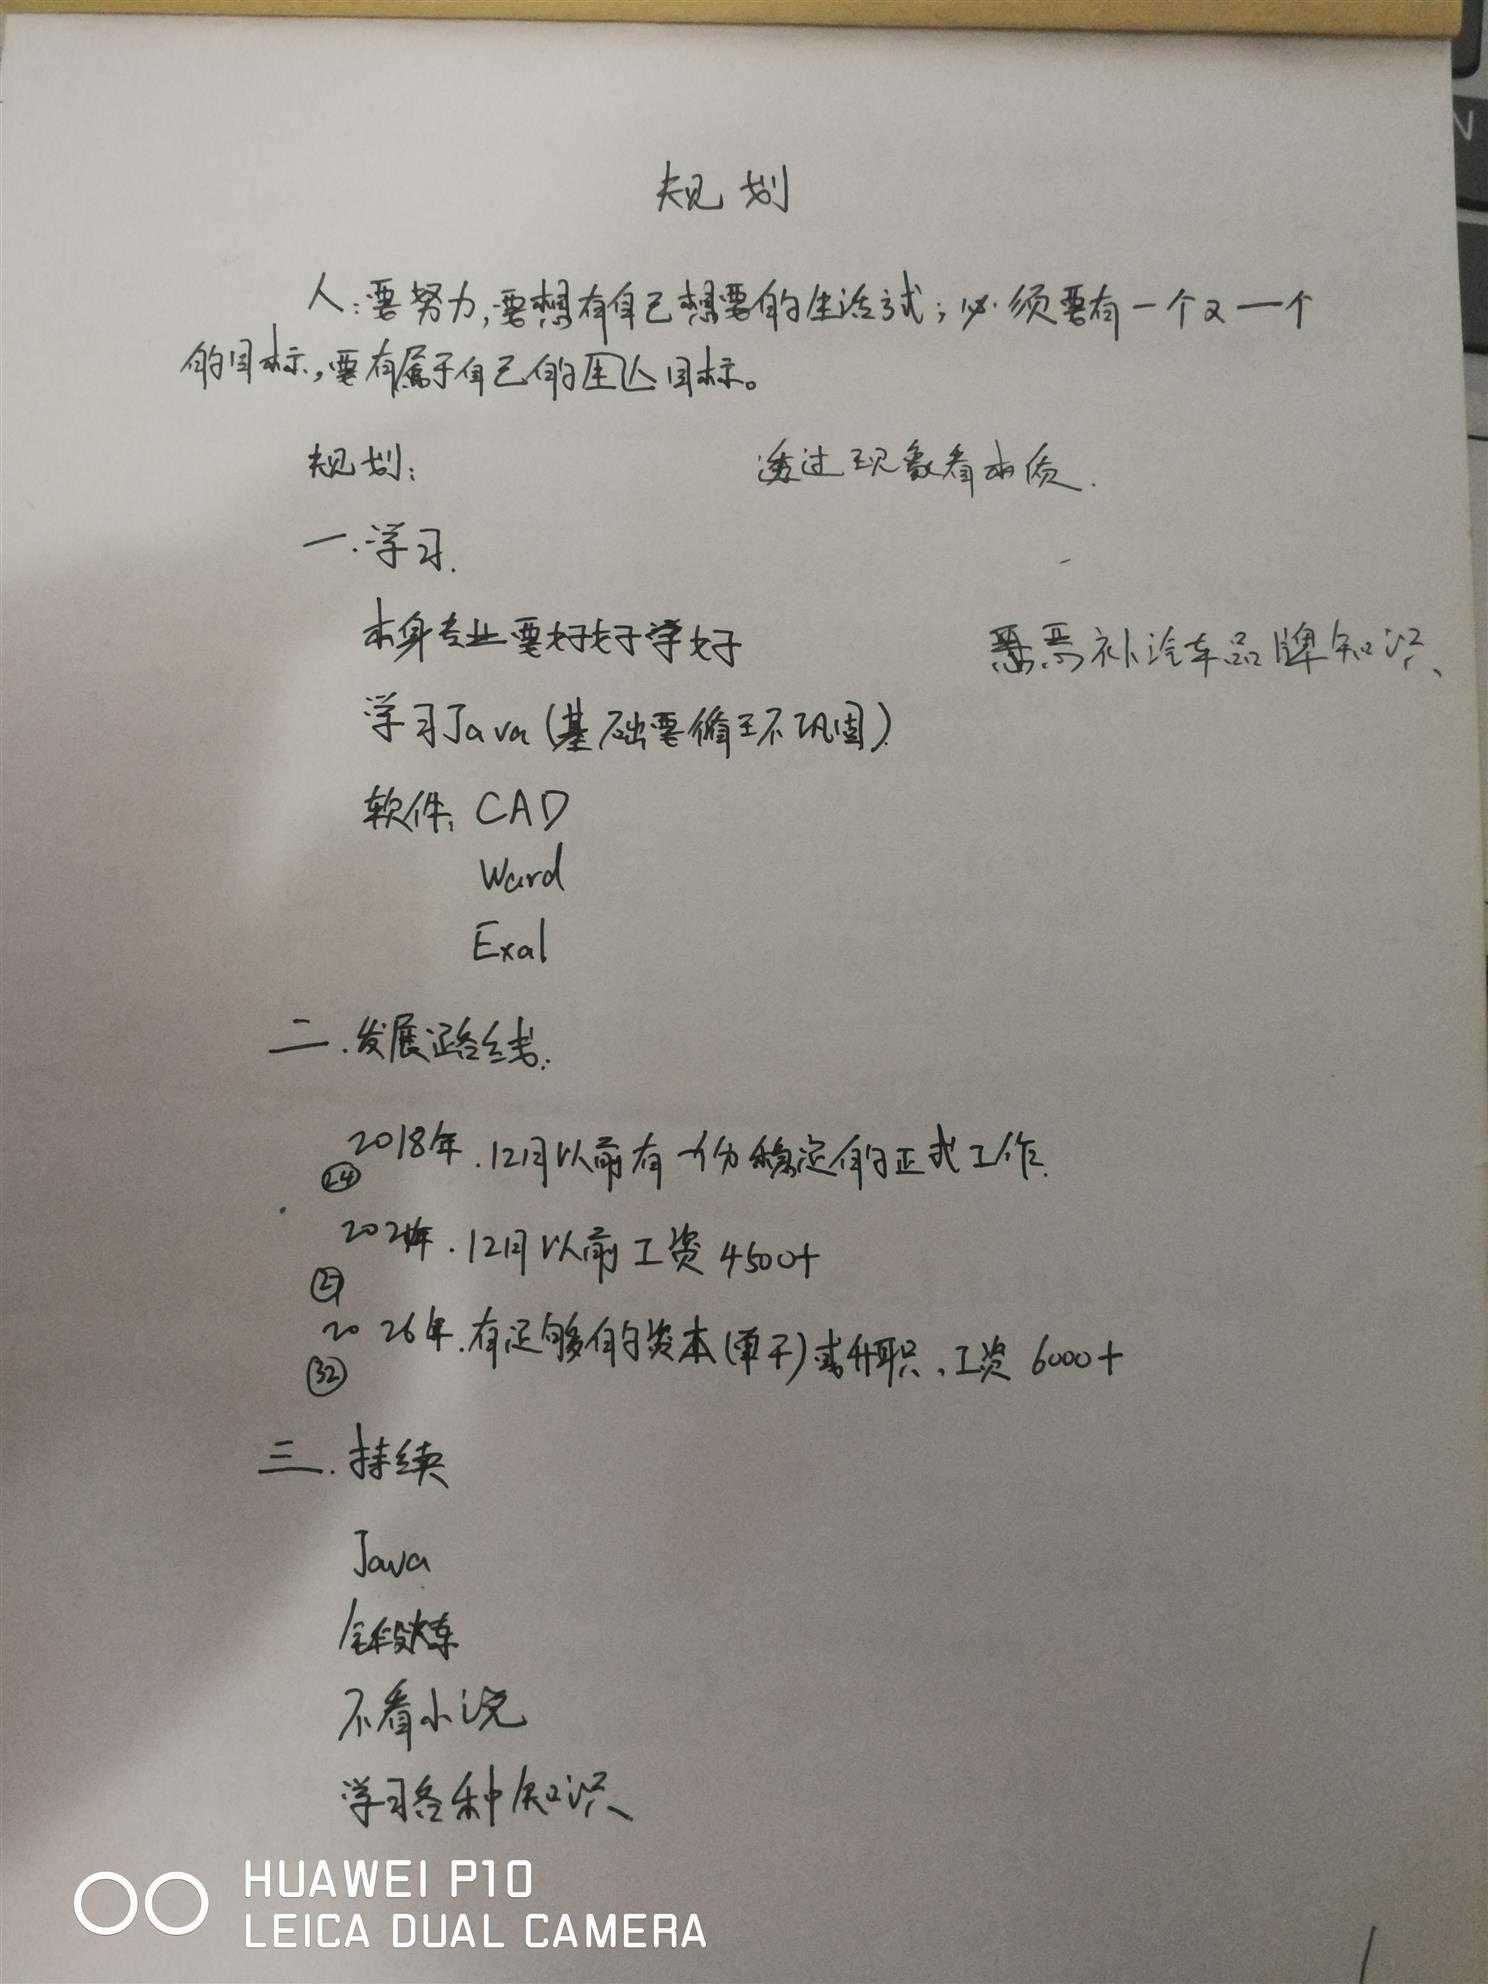 规划
人:要努力,要想有自己想要的生活方式;必须要有一个又一个
的目标,要有属于自己的目标。
规划:
透过现象看本质.
一.学习.
本身专业要好好学好
恶补汽车品牌知识、
学习Java(基础要 巩固)
软件: CAD
Word
Exal
二.发展路线.
2018年.12月以前有一份稳定的正式工作.
24
2021年.12月以前工资4500+
27
2026年.有足够的资本(单干)或升职、工资6000+
32
三.持续
Java
锻炼
不看小说
学习各种知识
HUAWEI P10
LEICA DUAL CAMERA
N